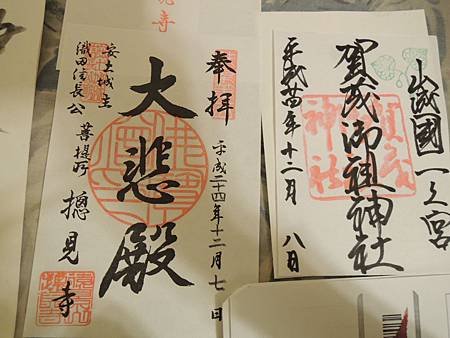 山城國一之宮
賀茂御祖神社
平成廿四年十二月八日
奉拝
平成二十四年十二月七日
大悲殿
安土城主
織田信長公
菩提所
摠見寺